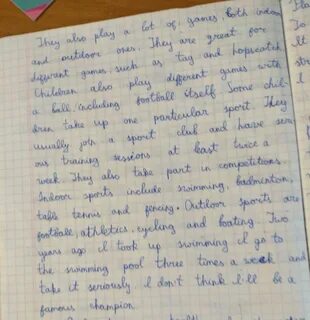 They also play a lot of games both indoor
and outdoor ones. They are great for
different games such as tag and hopscotch.
Children also play different games with
a ball, including football itself. Some chil-
dren take up one particular sport. They
usually join a sport club and have seri-
ous training sessions at least twice a
week. They also take part in competitions.
Indoor sports include swimming, badminton,
table tennis and fencing. Outdoor sports are
football, athletics, cycling and boating. Two
years ago I took up swimming. I go to
the swimming pool three times a week and
take it seriously. I don't think I'll be a
famous champion.